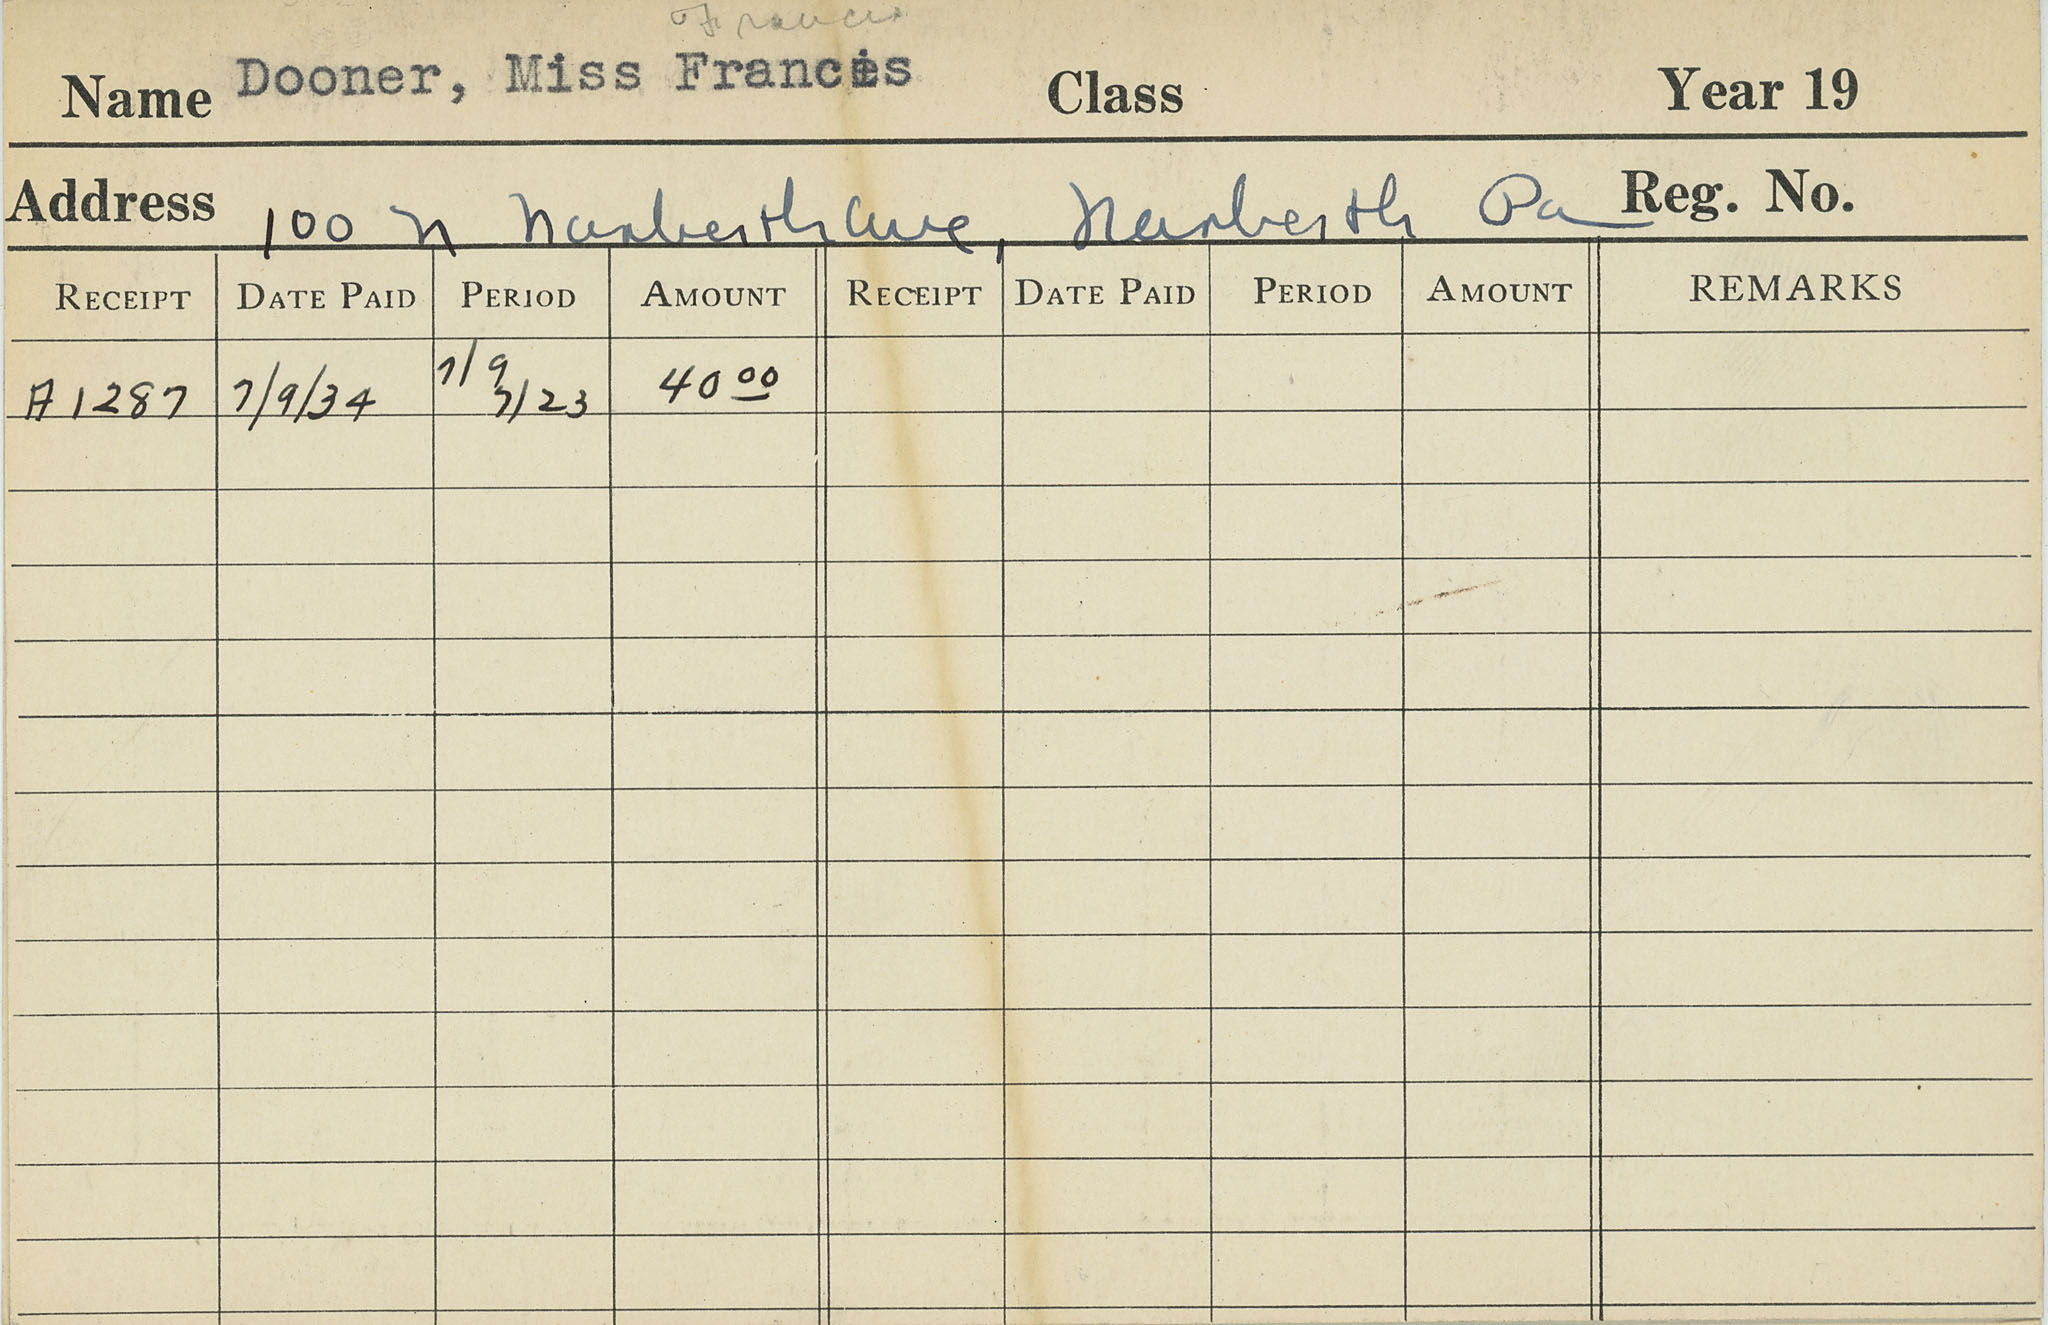 Francis
Name Dooner, Miss Francis Class Year 19
Address 100 N Narberth Ave, Narberth Pa Reg. No.
RECEIPT DATE PAID PERIOD AMOUNT RECEIPT DATE PAID PERIOD AMOUNT REMARKS
A1287 7/9/34 7/9 7/23 40 00